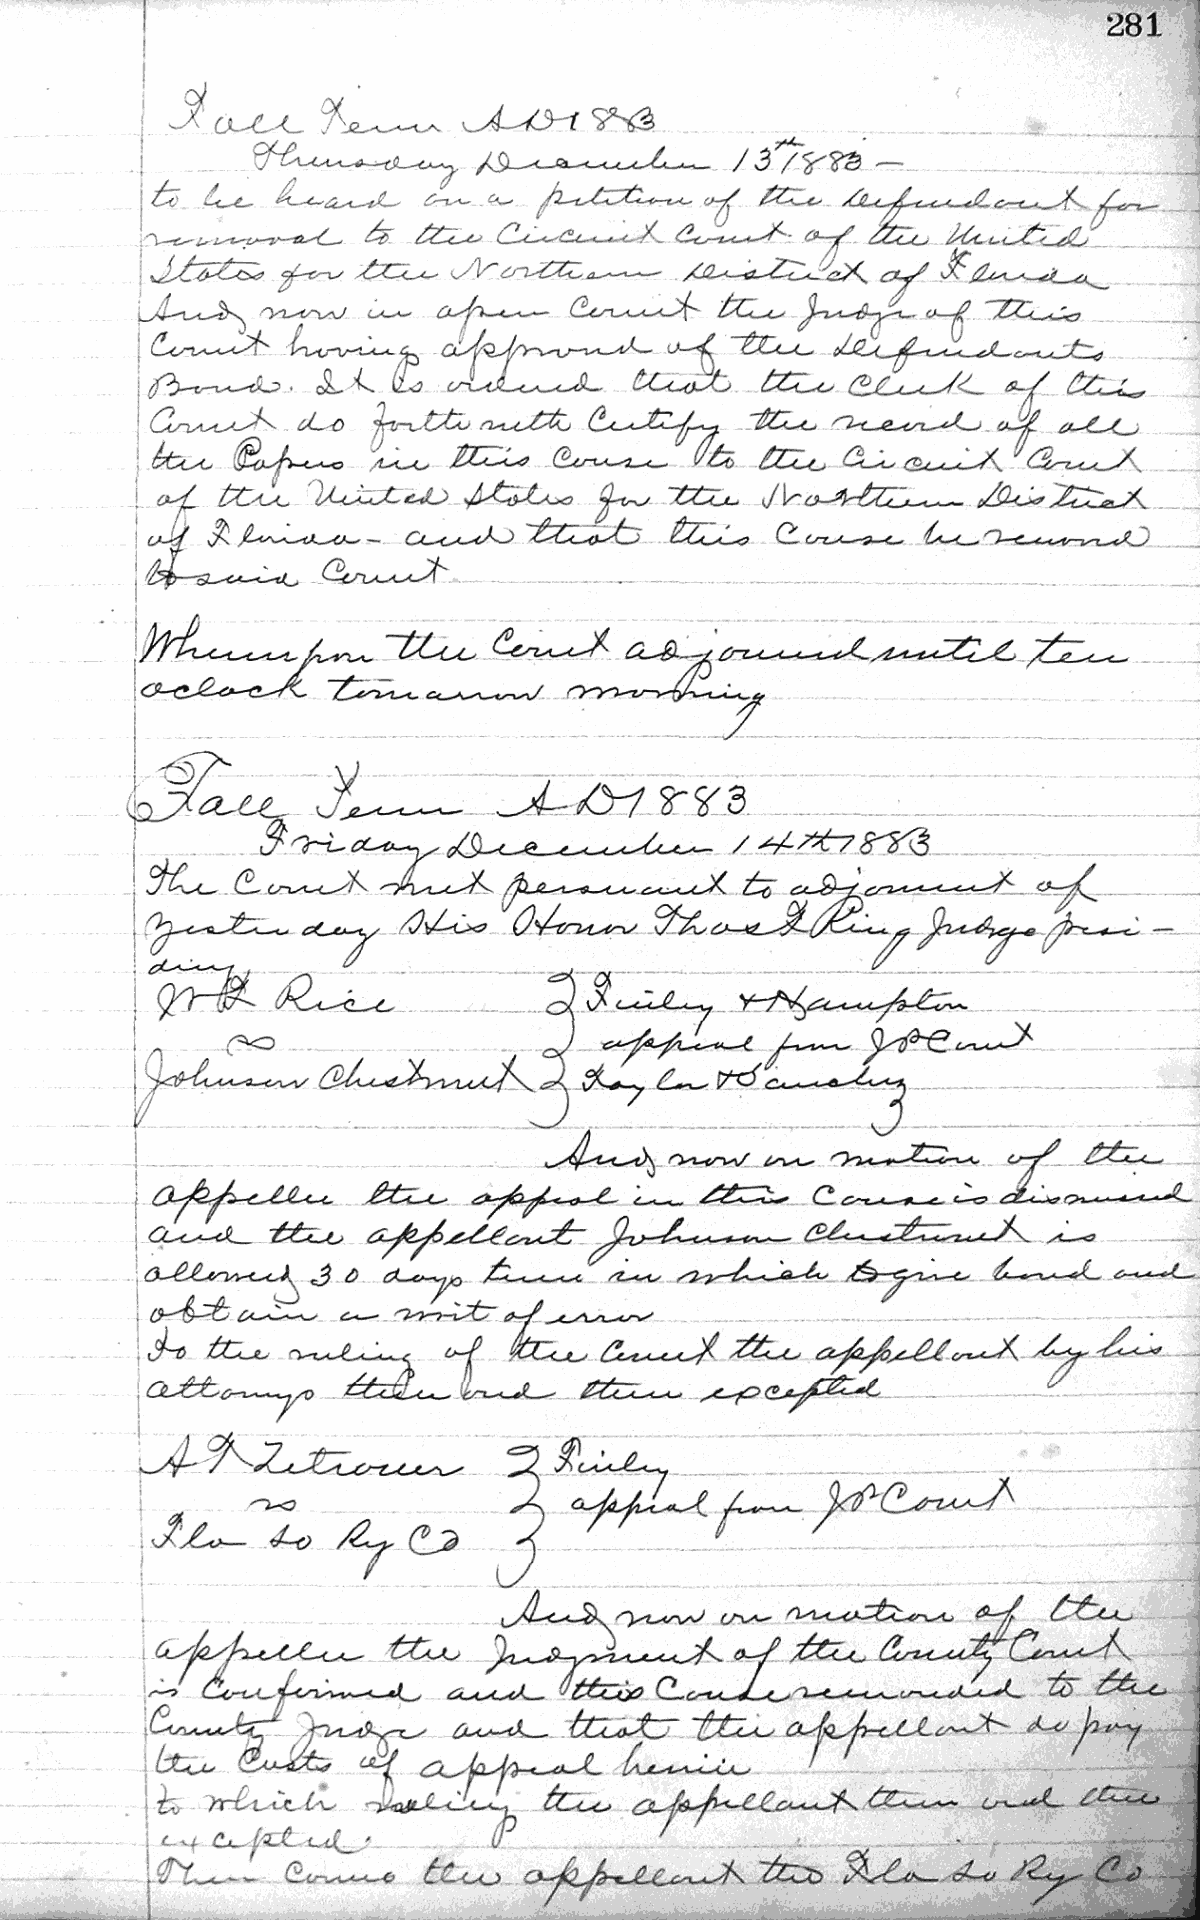 281
Fall Term AD 1883
Thursday December 13th 1883 -
to be heard on a petition of the Defendant for
removal to the Circuit Court of the United
States for the Northern District of Florida
And now in open Court the Judge of this
Court having approved of the Defendants
Bond. It is ordered that the Clerk of this
Court do forthwith Certify the record of all
the Papers in this Cause to the Circuit Court
of the United States for the Northern District
of Florida - and that this Cause be removed
to said Court
Whereupon the Court adjourned until ten
oclock tomorrow morning
Fall Term AD 1883
Friday December 14th 1883
The Court met persuant to adjornment of
Yesterday His Honor Thos F King Judge presi-
ding
W F Rice } Finley & Hampton
vs appeal from JP Court
Johnson Chestnut } Taylor & Sanchez
And now on motion of the
appellee the appeal in this Cause is dismissed
and the appellant Johnson Chestnut is
allowed 30 days time in which to give bond and
obtain a writ of error
To the ruling of the Court the appellant by his
attorneys then and there excepted
A T Zetrouer } Finley
vs appeal from JP Court
Fla So Ry Co }
And now on motion of the
appellee the Judgment of the County Court
is Confirmed and this Cause remanded to the
County Judge and that the appellant do pay
the Costs of appeal herein
to which ruling the appellant then and there
excepted.
Then Comes the appellant the Fla So Ry Co